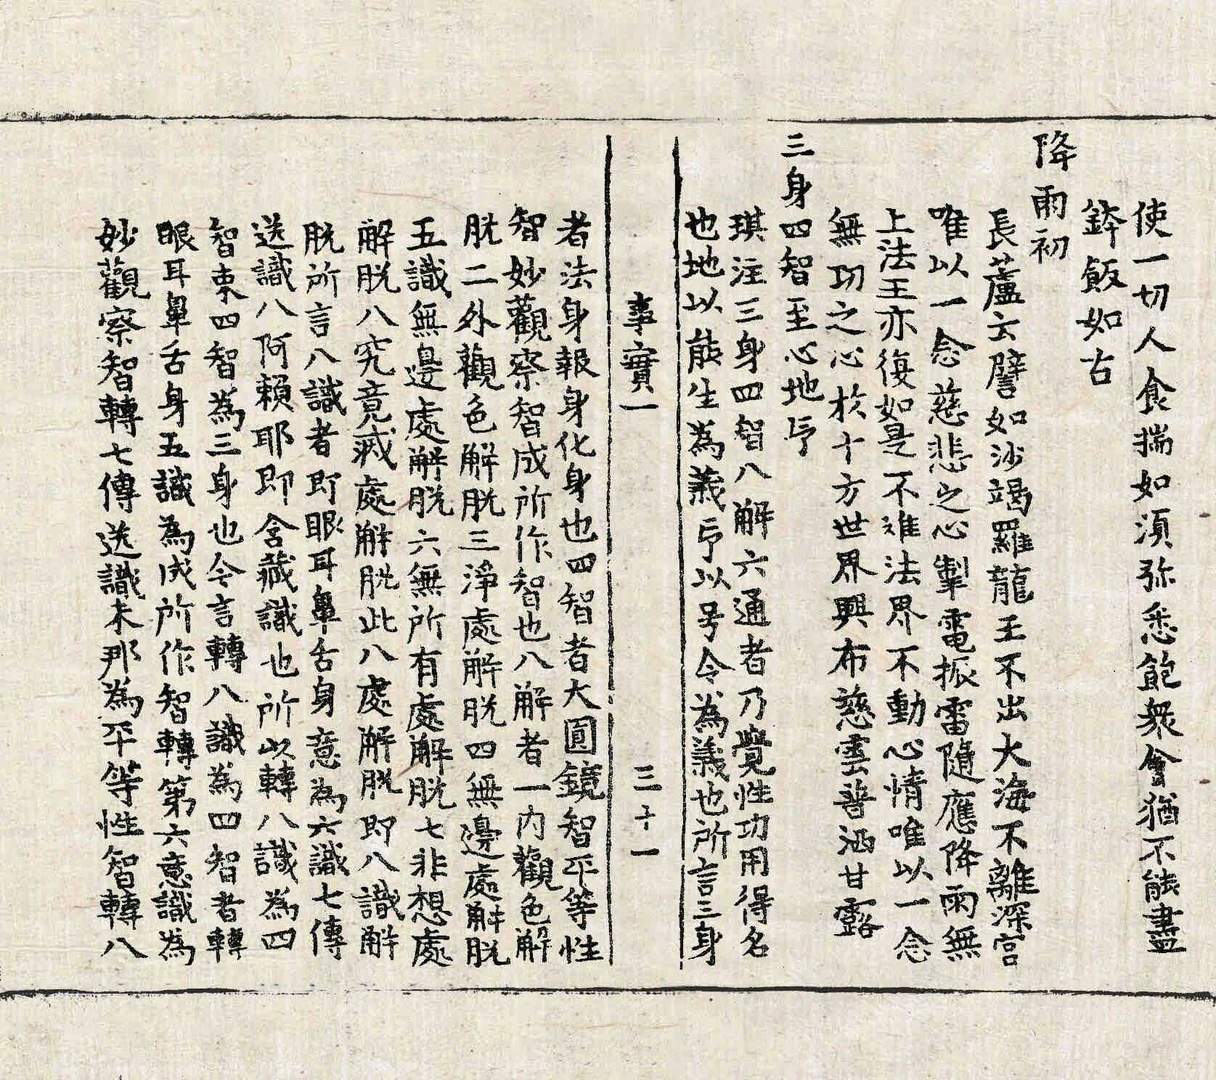 使一切人食揣如湏弥悉飽衆會猶不能盡
鉢飯如古
降雨初
長蘆云譬如沙竭羅龍王不出大海不離深宫
唯以一念慈悲之心掣電振雷隨應降雨無
上法王亦復如是不進法界不動心情唯以一念
無功之心於十方世界興布慈雲普洒甘露
三身四智至心地亐
琪注三身四智八解六通者乃覺性功用得名
也地以能生為義亐以号令為義也所言三身
事實一
三十一
者法身報身化身也四智者大圓鏡智平等性
智妙觀察智成所作智也八解者一内觀色解
脱二外觀色解脱三淨處解脱四無邊處解脱
五識無邊處解脱六無所有處解脱七非想處
解脱八究竟滅處解脱此八處解脱即八識解
脱所言八識者即眼耳鼻舌身意為六識七傳
送識八阿賴耶即含藏識也所以轉八識為四
智束四智為三身也今言轉八識為四智者轉
眼耳鼻舌身五識為成所作智轉第六意識為
妙觀察智轉七傳送識末那為平等性智轉八